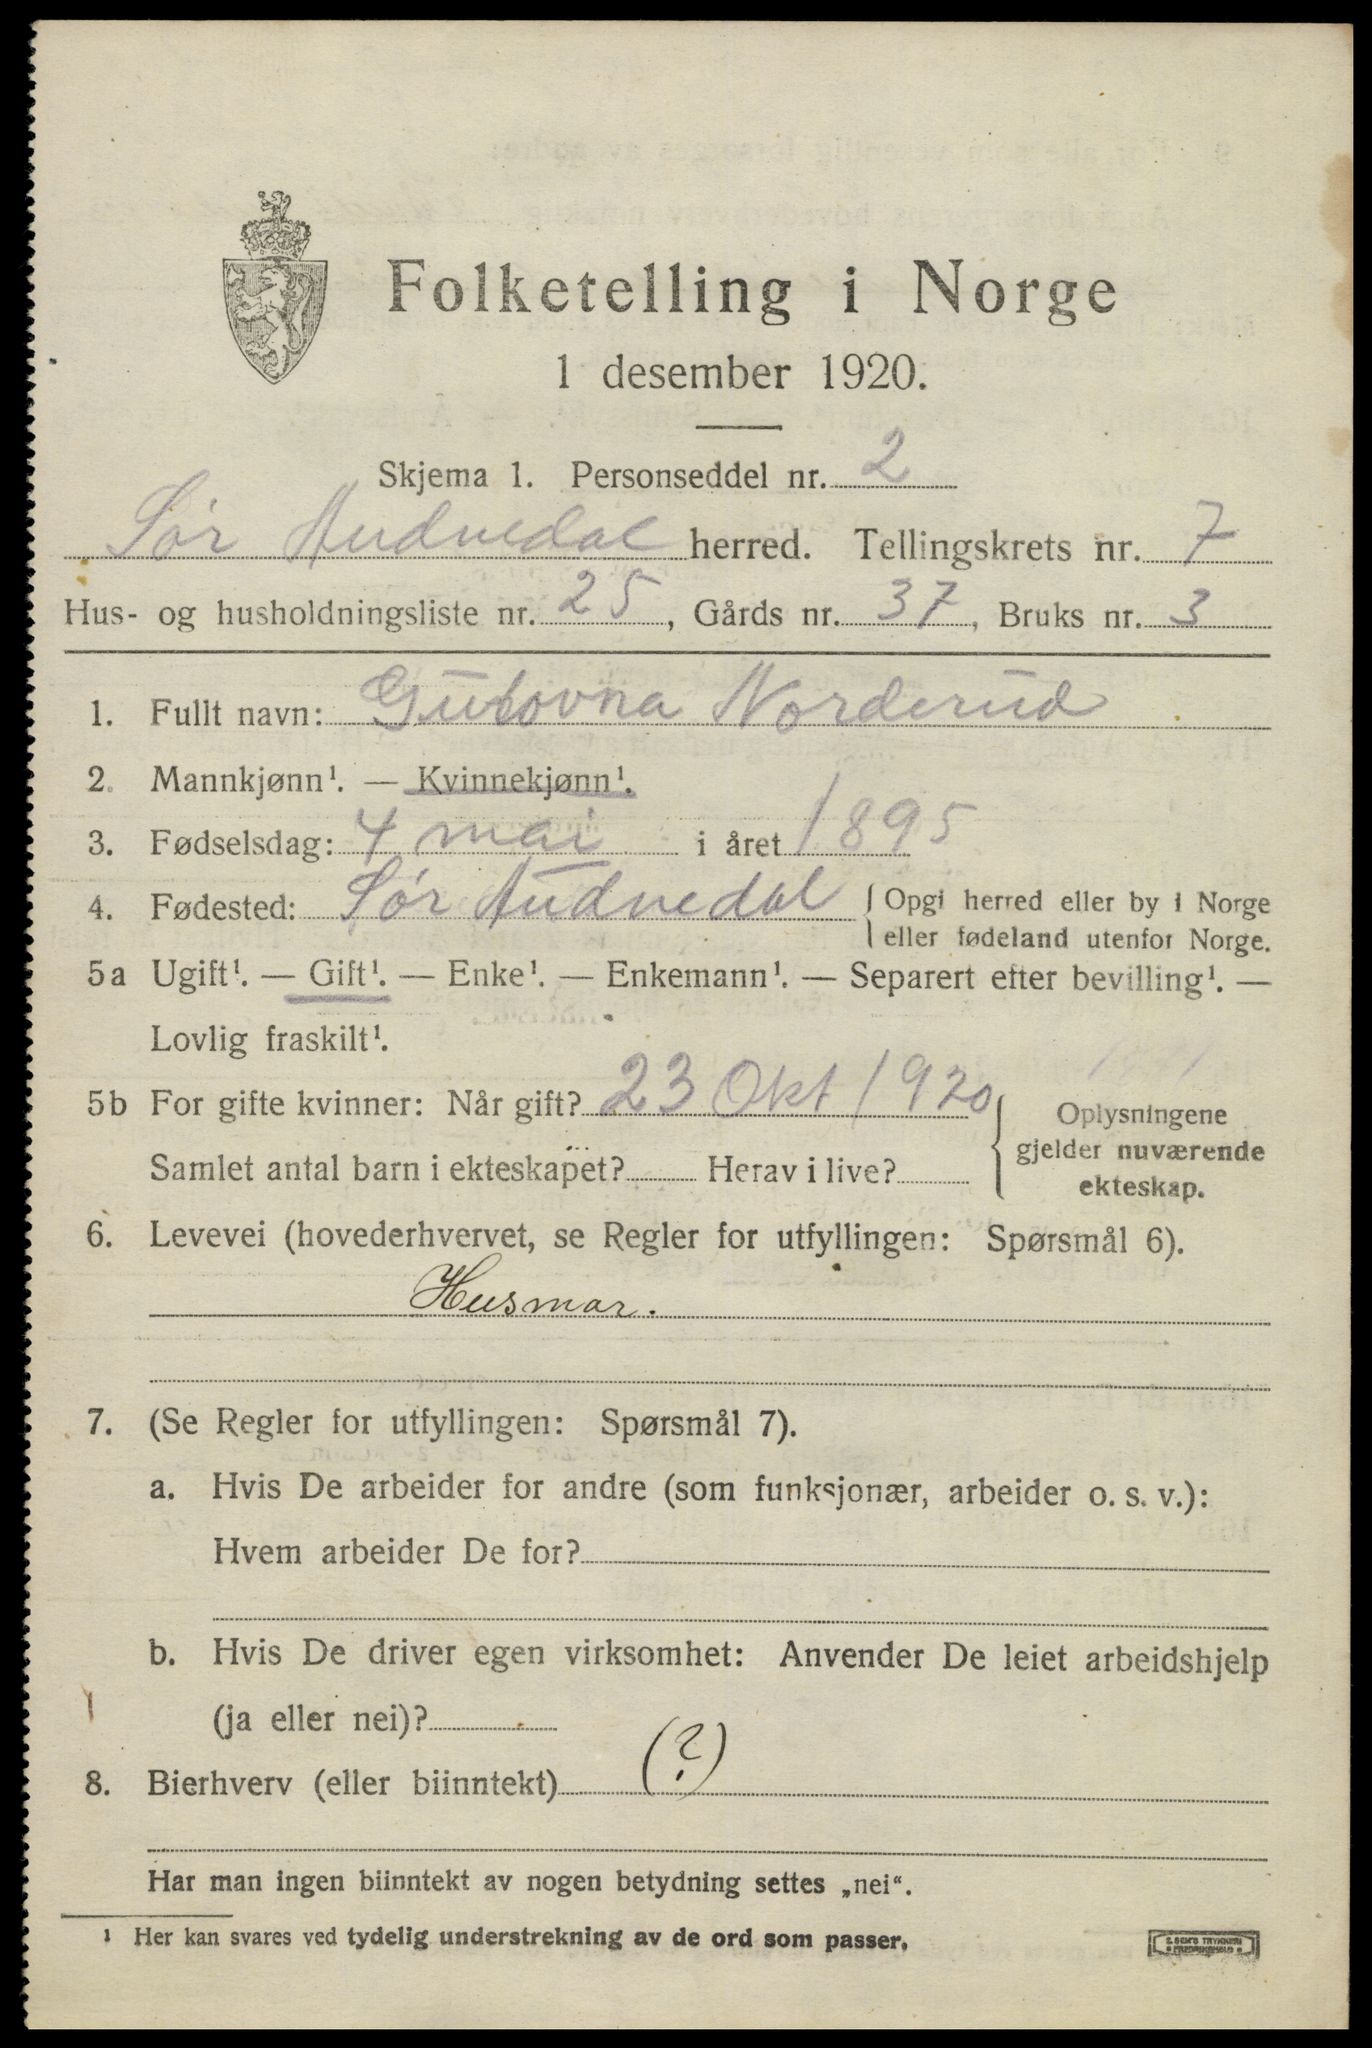 Folketelling i Norge
1 desember 1920.
Skjema 1. Personseddel nr. 2
Sør Audnedal herred. Tellingskrets nr. 7
Hus- og husholdningsliste nr. 25, Gårds nr. 37, Bruks nr. 3
1. Fullt navn: Norderud
2. Mannkjønn¹. — Kvinnekjønn¹.
3. Fødselsdag: 4 mai i året 1895
4. Fødested: Sør Audnedal { Opgi herred eller by i Norge
eller fødeland utenfor Norge.
5a Ugift¹. — Gift¹. — Enke¹. — Enkemann¹. — Separert efter bevilling¹. —
Lovlig fraskilt¹.
5b For gifte kvinner: Når gift? 23 Okt 1920 { Oplysningene
gjelder nuværende
Samlet antal barn i ekteskapet? Herav i live?
ekteskap.
6. Levevei (hovederhvervet, se Regler for utfyllingen: Spørsmål 6).
Husmor.
7. (Se Regler for utfyllingen: Spørsmål 7).
a. Hvis De arbeider for andre (som funksjonær, arbeider o. s. v.):
Hvem arbeider De for?
b. Hvis De driver egen virksomhet: Anvender De leiet arbeidshjelp
(ja eller nei)?
8. Bierhverv (eller biinntekt) (?)
Har man ingen biinntekt av nogen betydning settes „nei“.
¹ Her kan svares ved tydelig understrekning av de ord som passer.